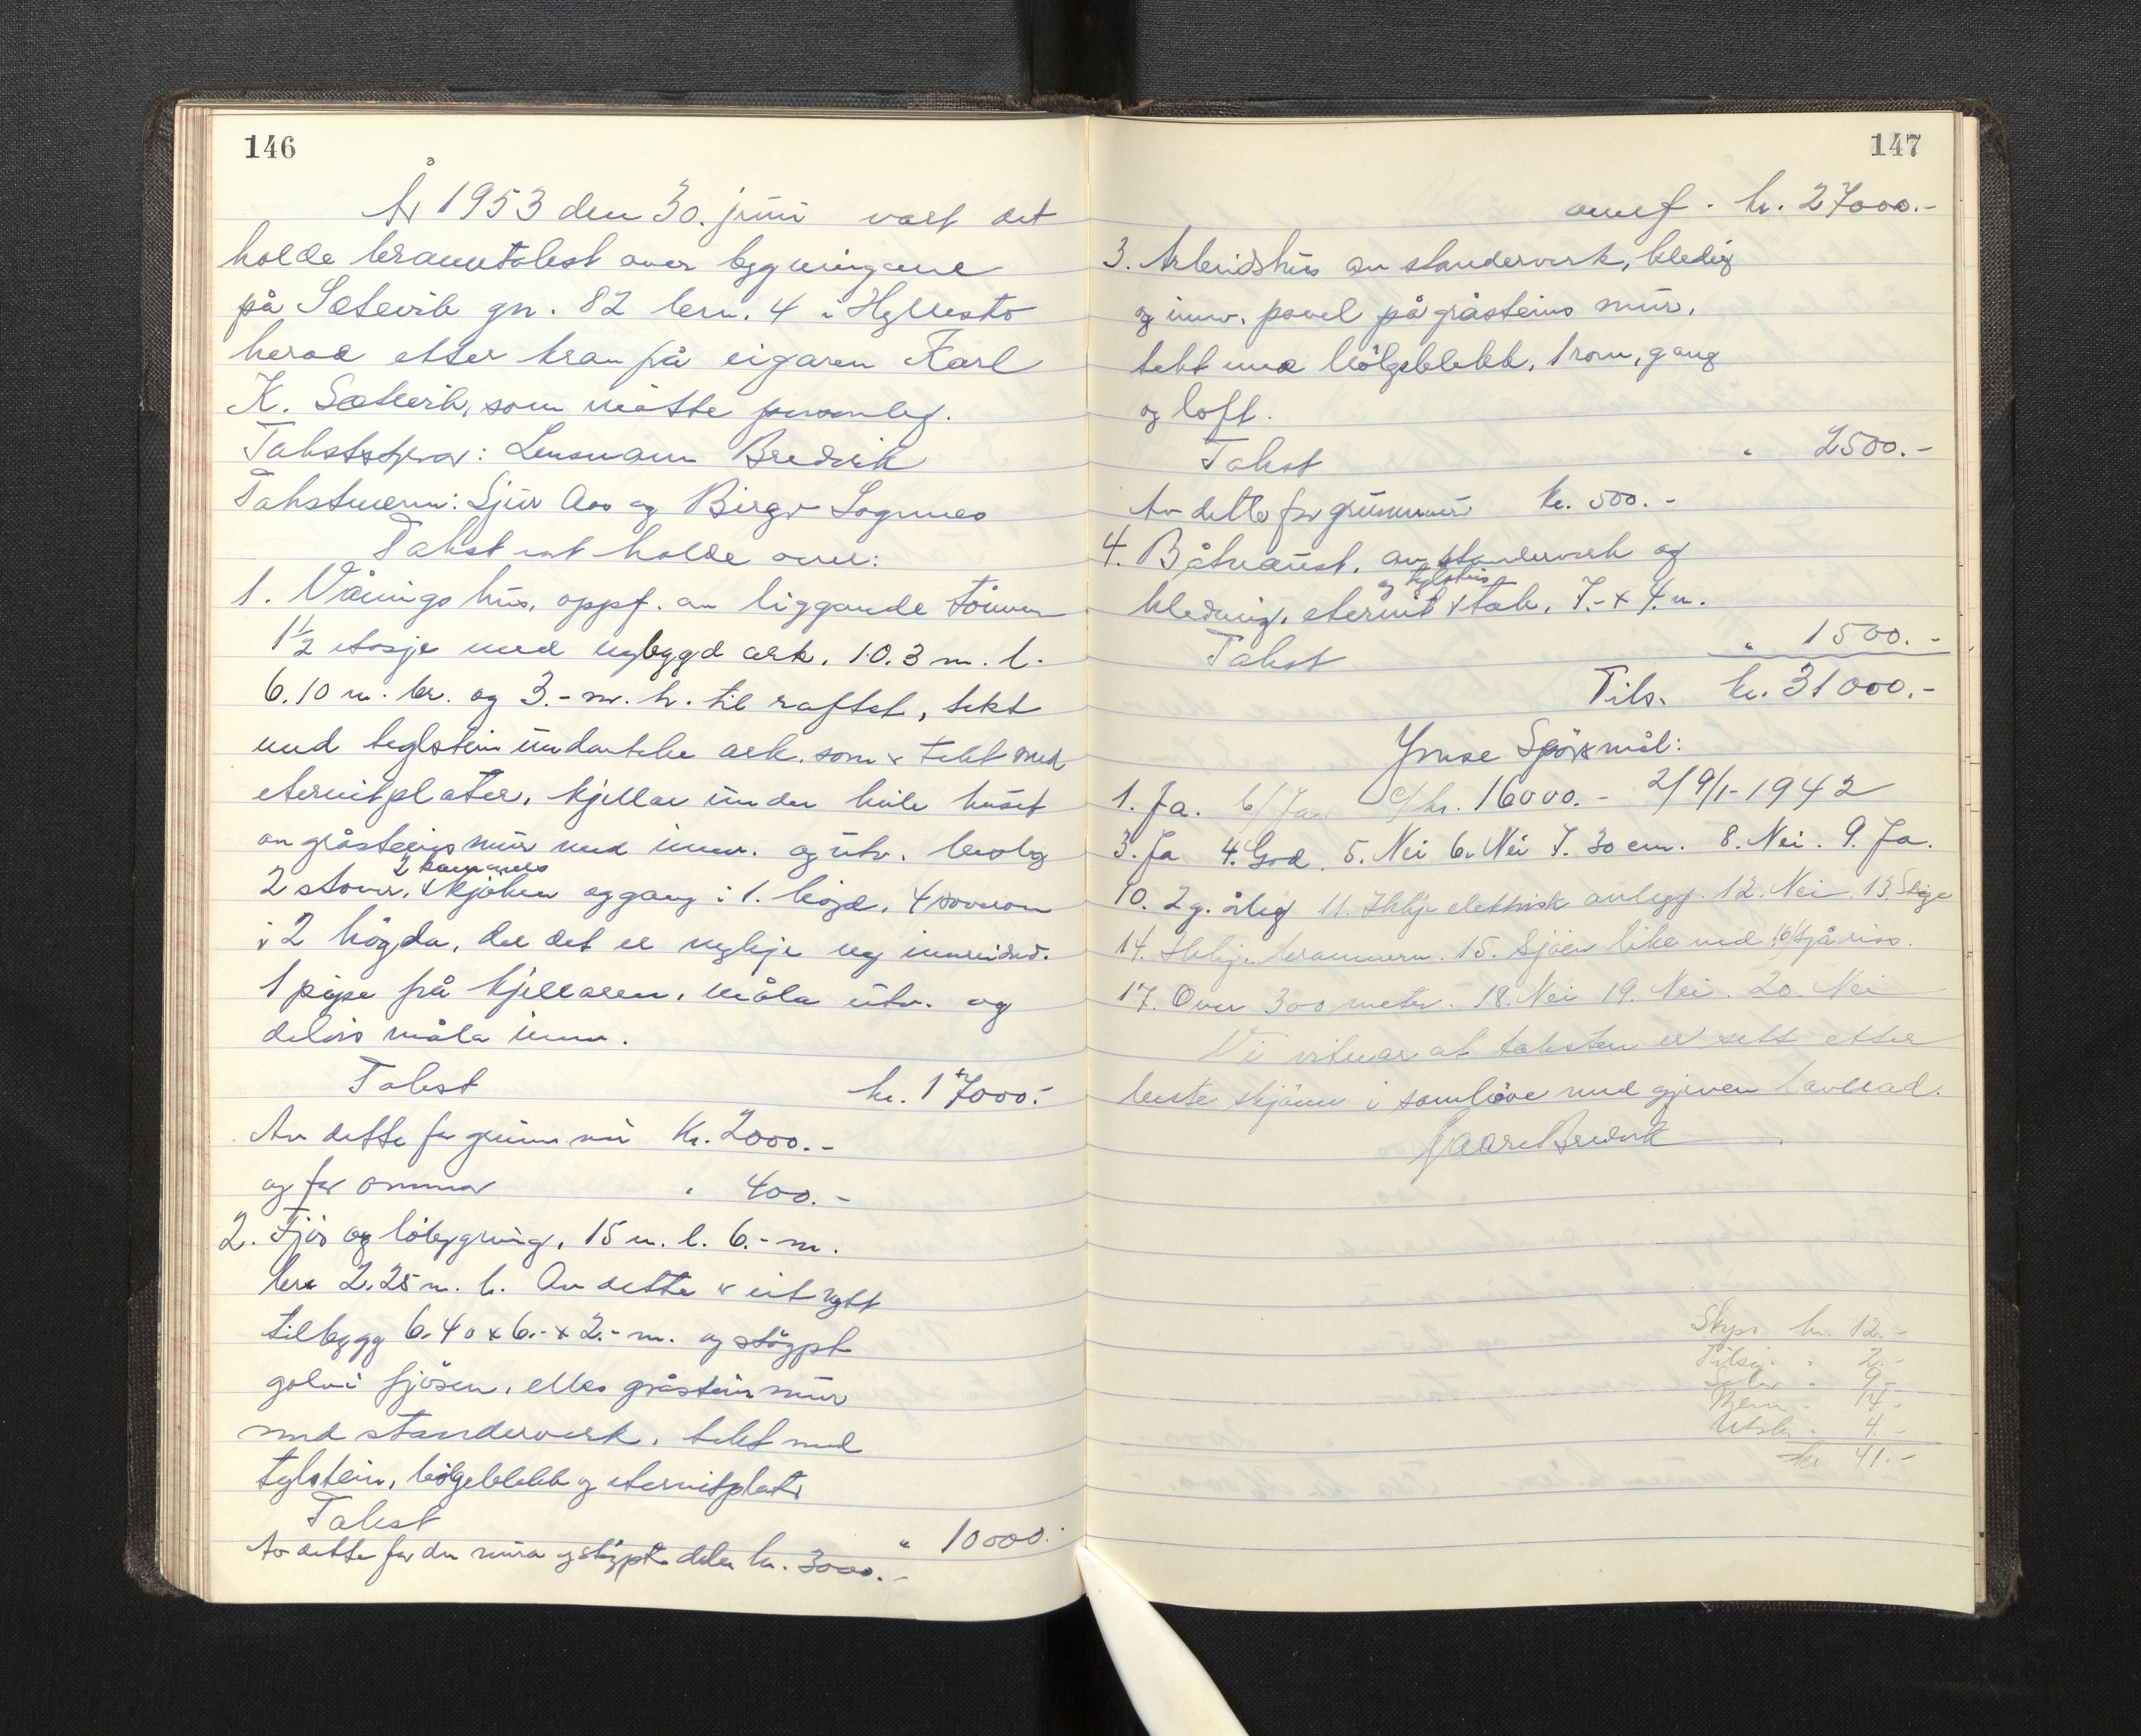 146
År 1953 den 30. juni vart det
holde branntakst over bygningane
på Sætevik gn. 82 brn. 4 i Hyllestø
herad etter krav på eigaren Karl
K. Sætevik, som møtte personleg.
Takststyrar: Lensmann Bredvik
Takstmenn: Sjur Aas og Birger Sognnes
Takst vart holde over:
1. Våningshus, oppf. av liggande tömmer
1½ etasje med nybygd ark. 10.3 m. l.
6.10 m. br. og 3.- m. h. til raftet, tekt
med teglstein undanteke ark. som er tekt med
eternitplater, kjellar under heile huset
av gråsteinsmur med innv. og utv.
2 stover, 2 kammers kjøken og gang i 1. högd, 4 soverom
i 2 högda, der det er nyleje ny innreidd.
1 pipe frå kjellaren. måla utv. og
delvis måla innv.
Takst kr. 17000.-
Av dette for grunnmur kr. 2000.-
og for omnar " 400.-
2. Fjös og löbygning, 15 m. l. 6.- m.
br. 2.25 m. h. Av dette er eit nytt
tilbygg 6.40 x 6.- x 2.- m. og stöypt
golv i fjösen, elles gråsteinsmur
med standerverk, tekt med
teglstein, bölgeblekk og eternitplater
Takst " 10000.-
Av dette for den mura og stöypte delen kr. 3000.-
147
overf. kr. 27000.-
3. Arbeidshus av standerverk, kledning
og innv. panel på gråsteins mur,
tekt med bölgeblekk, 1 rom, gang
og loft.
Takst " 2500.-
Av dette for grunnmur kr. 500.-
4. Båtnaust, av standerverk og
kledning, eternit og teglsteins tak, 7.- x 4. m.
Takst " 1500.-
Tils. kr. 31000.-
Ymse Spörsmål:
1. Ja. b/ Ja. c/ kr. 16000.- 2/ 9/1-1942
3. Ja 4. God. 5. Nei 6. Nei 7. 30 cm. 8. Nei. 9. Ja.
10. 2 g. årleg 11. Ikkje elektrisk anlegg. 12. Nei. 13. Stige
14. Ikkje brannvern. 15. Sjöen like ved 16/ Sjå riss.
17. Over 300 meter. 18. Nei 19. Nei. 20. Nei
Vi vitnar at taksten er sett etter
beste skjönn i samhöve med gjeven lovnad.
Kaare Bredvik
Skyss kr. 12.-
Tilsig. " 2.-
" 9.-
" 14.-
Utskr. " 4.-
kr 41.-